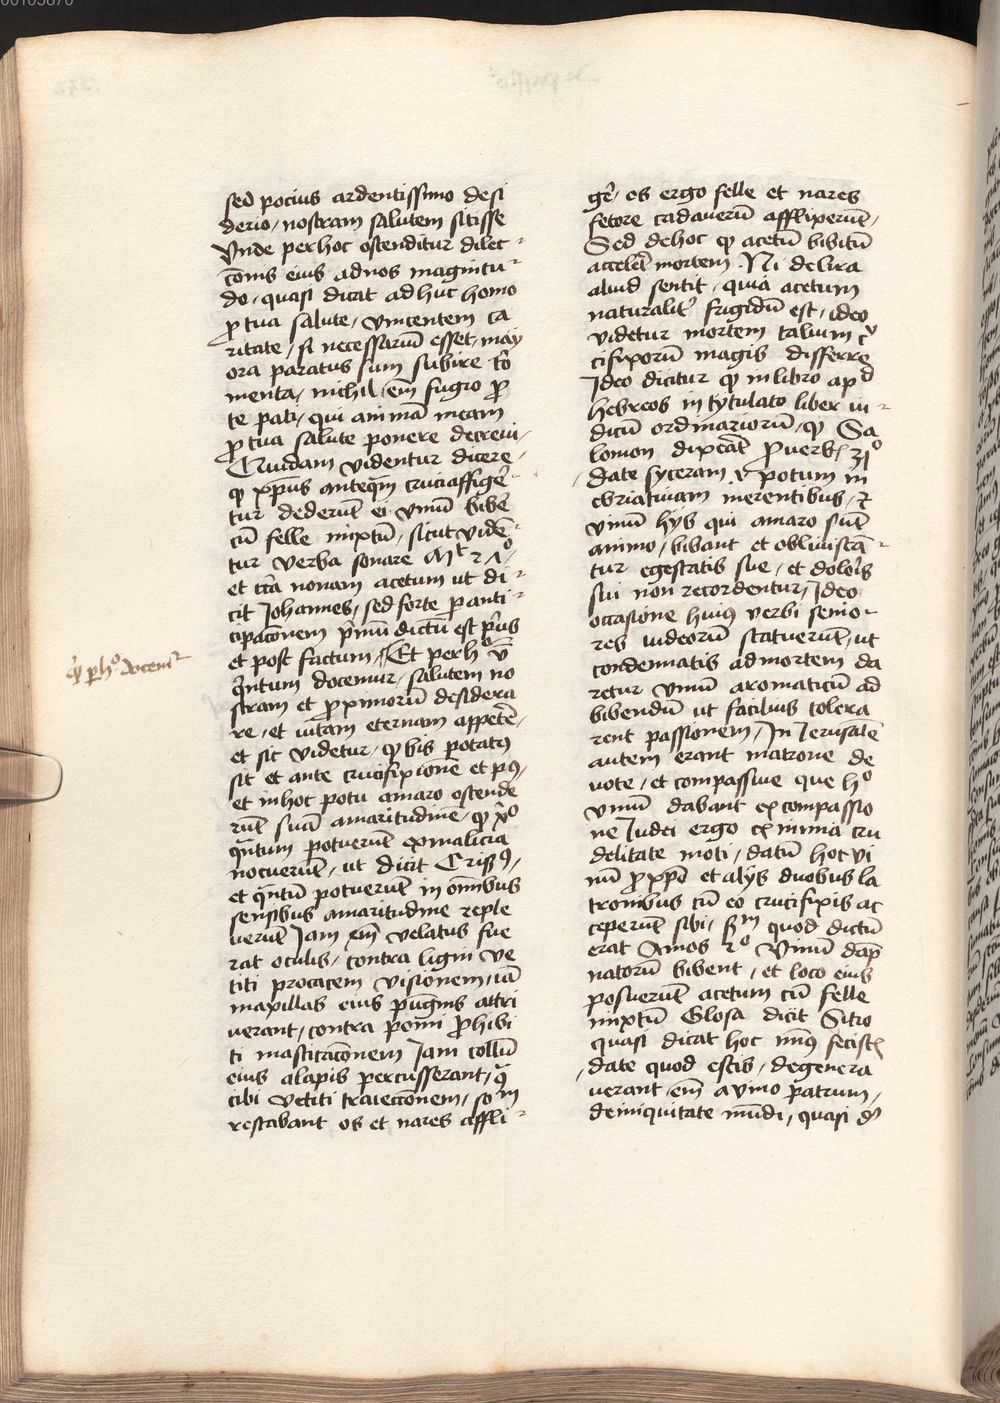 sed pocius ardentissimo desi
derio, nostram salutem sitisse
Vnde per hoc ostenditur dilec-
cōnis eius ad nos magnitu-
do, quasi dicat ad huc homo
ꝓ tua salute, vincentem ca
ritate, si necessariū esset, may
ora paratus sum subire to᷑
menta, nichil, em̄ fugio ꝓ
te pati, qui animā meam
ꝓ tua salute ponere decreui,
Quidam videntur dicere,
ꝙ xpūs anteqm̄ cruciaffige᷑
tur dederūt ei vinū bibe᷑
cū felle mixtū, sicut vide᷑
tur verba sonare Mᵗ 27°,
et cc̄a nonam acetum ut di-
cit Johannes, sed forte ꝑ anti-
cipacōnem p᷑mū dictū est p᷑us
et post factum, Et per h° v̄
q᷑ntum docemur, salutem no
stram et ꝓximorū desidera
re, et vitam eternam appete᷑,
et sic videtur, ꝙ bis potatꝰ
sit et ante crucifixionē et pꝰ,
et in hoc potu amaro ostende
rūt suā amaritudinē, ꝙ x᷑o
qn̄tum potuerūt ex malicia
nocuerūt, ut dicit Crisꝰ,
et qn̄tū potuerūt in om̄ibus
sensibus amaritudine reple
uerūt Jam em̄ velatus fue
rat oculis, contra ligni ve
titi procacem visionem, iā
maxillas eius pugnis attri
uerant, contra pomi ꝓhibi
ti masticacōnem Jam collū
eius alapis percusserant, ꝓ
cibi vetiti traieccōnem, soᵐ
restabant os et nares affli-
ge᷑, os ergo felle et nares
fetore cadauerū afflixerūt,
Sed de hoc ꝙ acetū bibitū
acceleᷓt mortem Ni de lira
aliud sentit, quia acetum
naturalit᷑ frigidū est, ideo
videtur mortem talium c᷑u
cifixorū magis differre
Ideo dicitur ꝙ in libro apᵈ
hebreos in tytulato liber iu-
dicū ordinariorū, ꝙ Sa
lomon dixerat Prouerb 31°
, date syceram, et potum in
ebriatiuam merentibus, et
vinū hys qui amaro sūt
animo, bibant et obliuiscā-
tur egestatis sue, et dolo᷑is
sui non recordentur, Ideo
occasione huiꝰ verbi senio-
res iudeorū statuerūt, ut
condennatis ad mortem da
retur vinū aromaticū ad
bibendū ut facilius tolera
rent passionem, In Jerusalē
autem erant matrone de
uote, et compassiue que h°
vinū dabant ex compassio
ne Judei ergo ex nimia cru
delitate moti, datū hoc vi
nū ꝓ xp̄o et alys duobus la
tronibus cū eo crucifixis ac
ceperūt sibi, sᵐ quod dictū
erat Amos 2° Vinū dāp
natorū bibent, et loco eius
posuerūt acetum cū felle
mixtū Glosa dicit Sitio
quasi dicat hoc minꝰ fecistꝭ
, date quod estis, degenera
uerant, em̄ a vino patrum,
de iniquitate mūdi, quasi d᷑
ꝙ per h° docem᷑